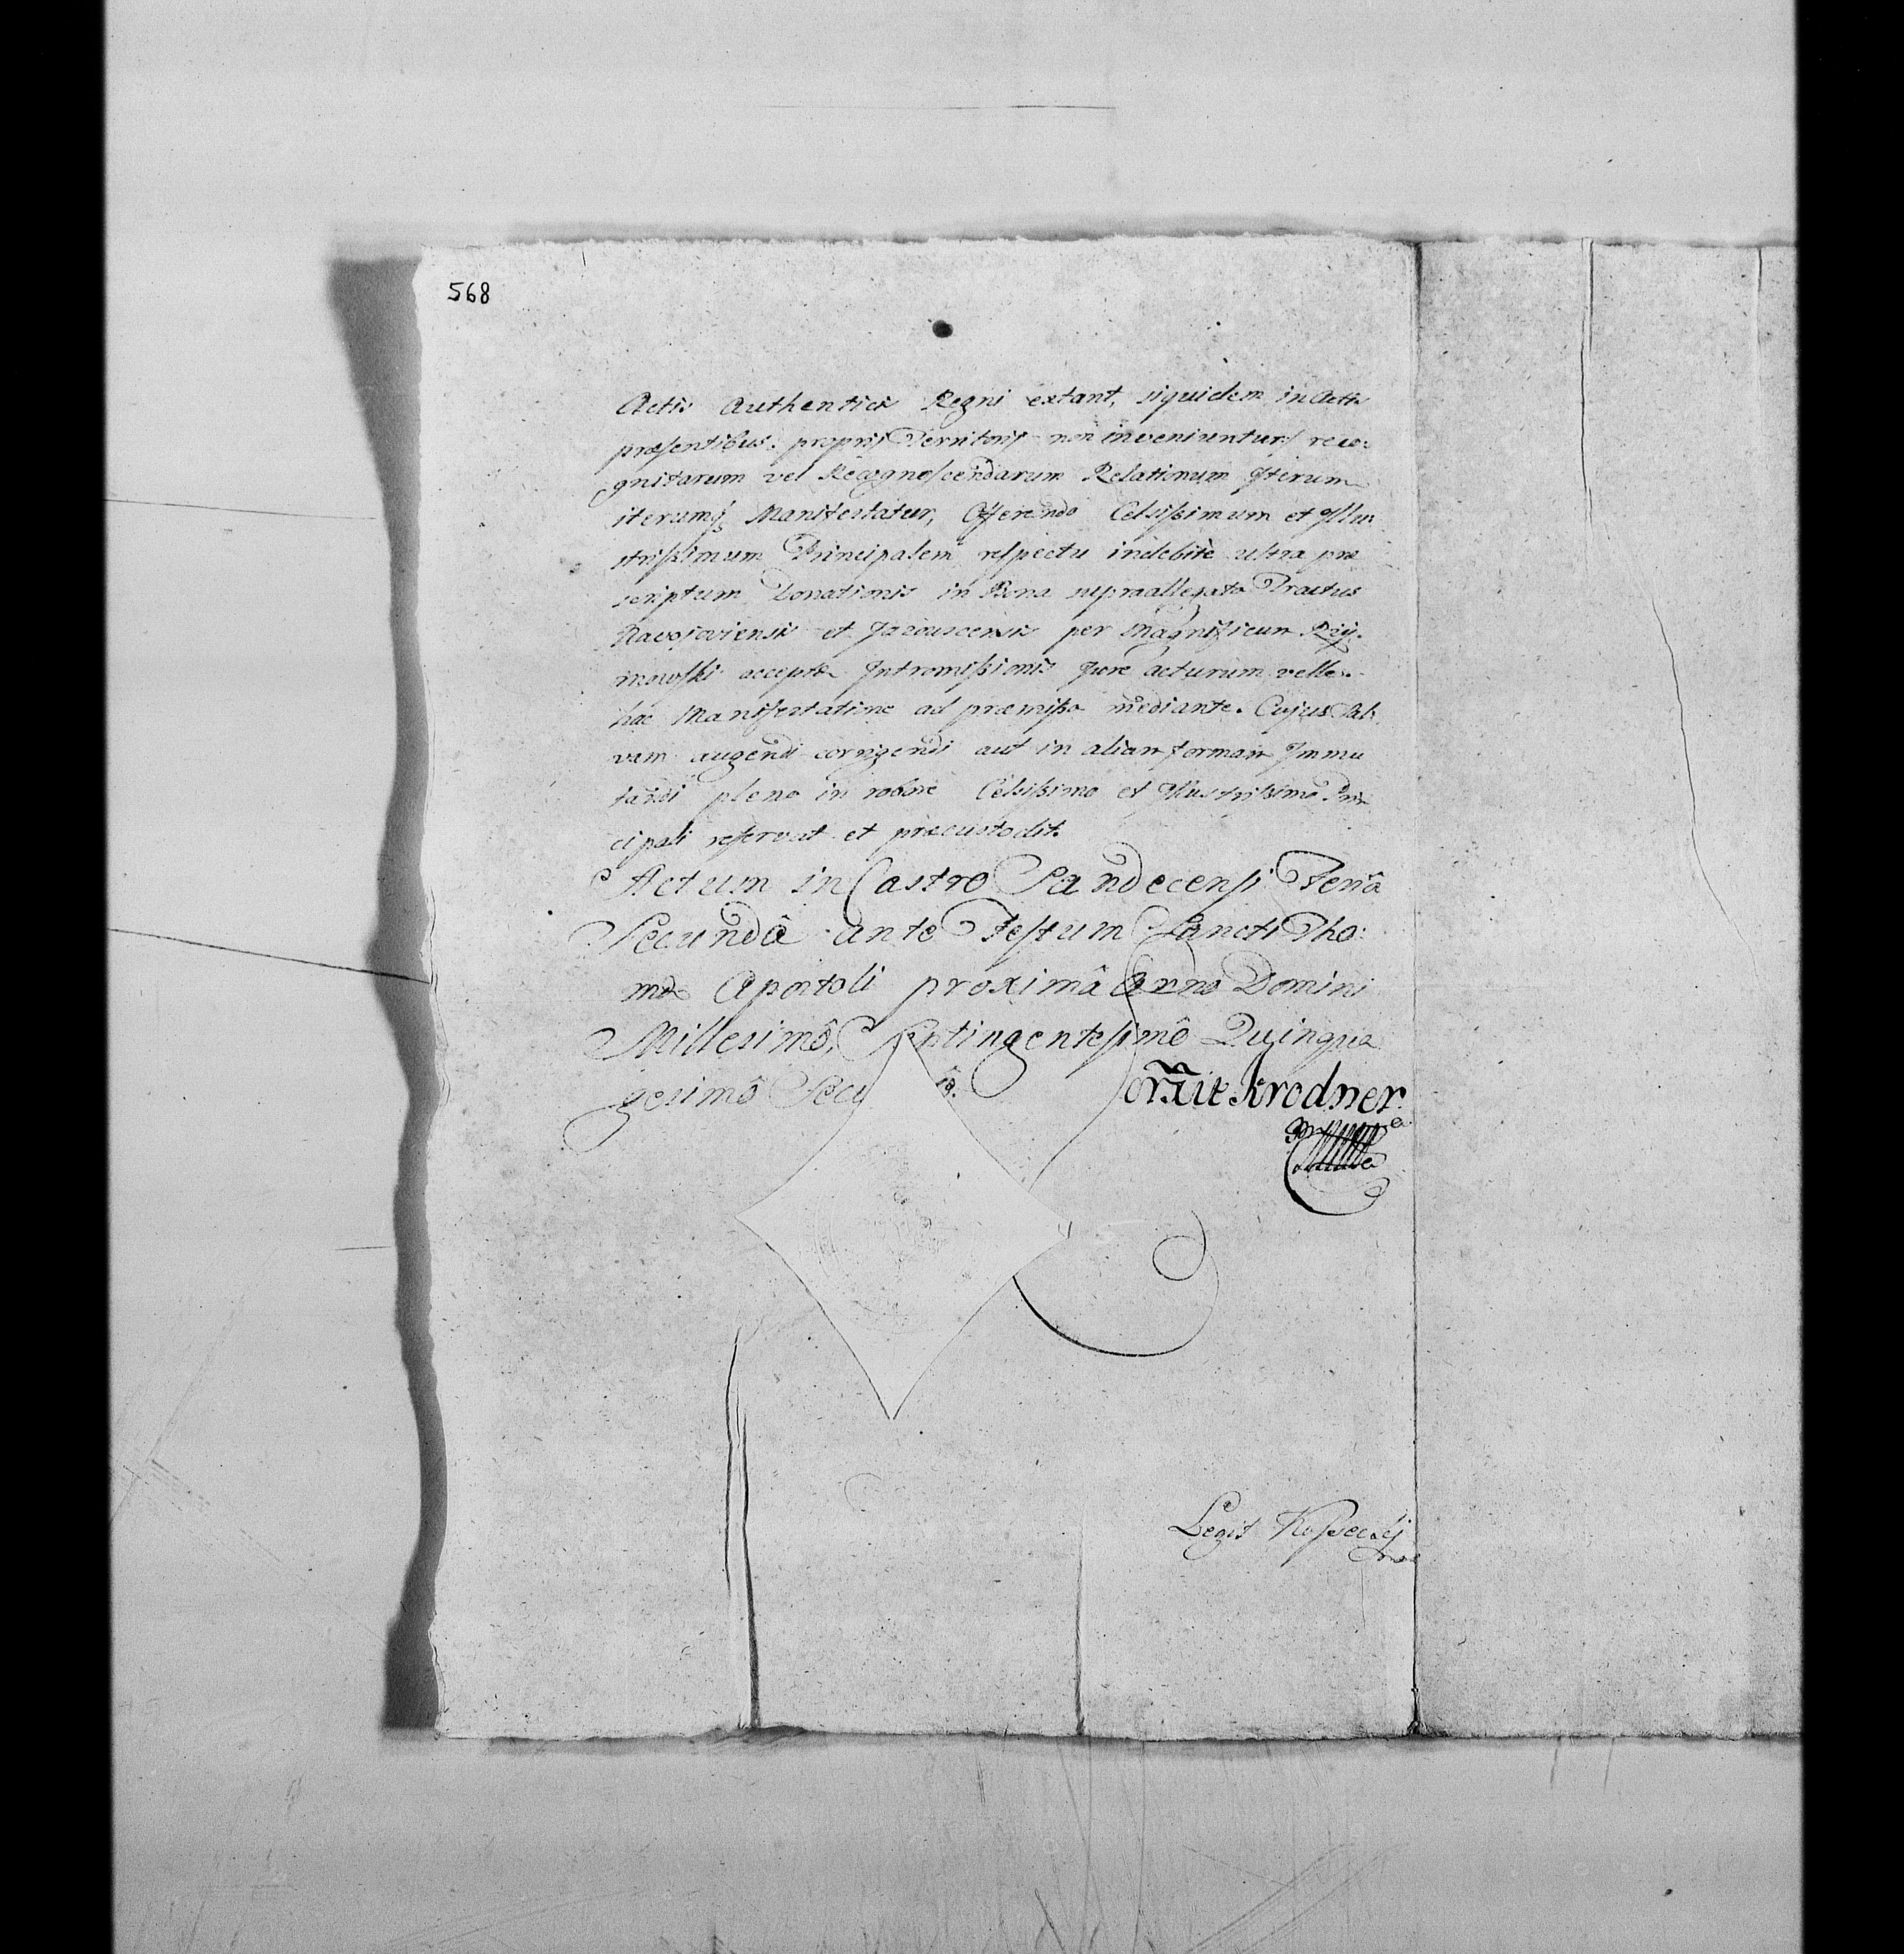 568
Actis Authenticis Regni extant, siquidem in Actis
præsentibus propriis Territoriis non inveniuntur reco:
gnitarum vel Recognoscendarum Relationum Iterum
iterumq; Manifestatur, Offerendo Celsissimum et Illu
strissimum Principalem respectu indebitè ultra præ
scriptum Donationis in Bona supraallegata Tractus
et per Magnificum
acceptæ Intromissionis Jure acturum velle.
hac Manifestatione ad præmissa mediante. Cujus Sal
vam augendi corrigendi aut in aliam formam Immu
tandi pleno in robore Celsissimo et Illustrissimo Prin
cipali reservat et præcustodit.
Actum in Castro Sandecensi Feriâ
Secundâ ante Festum Sancti Tho:
mæ Apostoli proximâ Anno Domini
Millesimô, Septingentesimô Quinqua
gesimô Secu dô.
Krodner
Legit